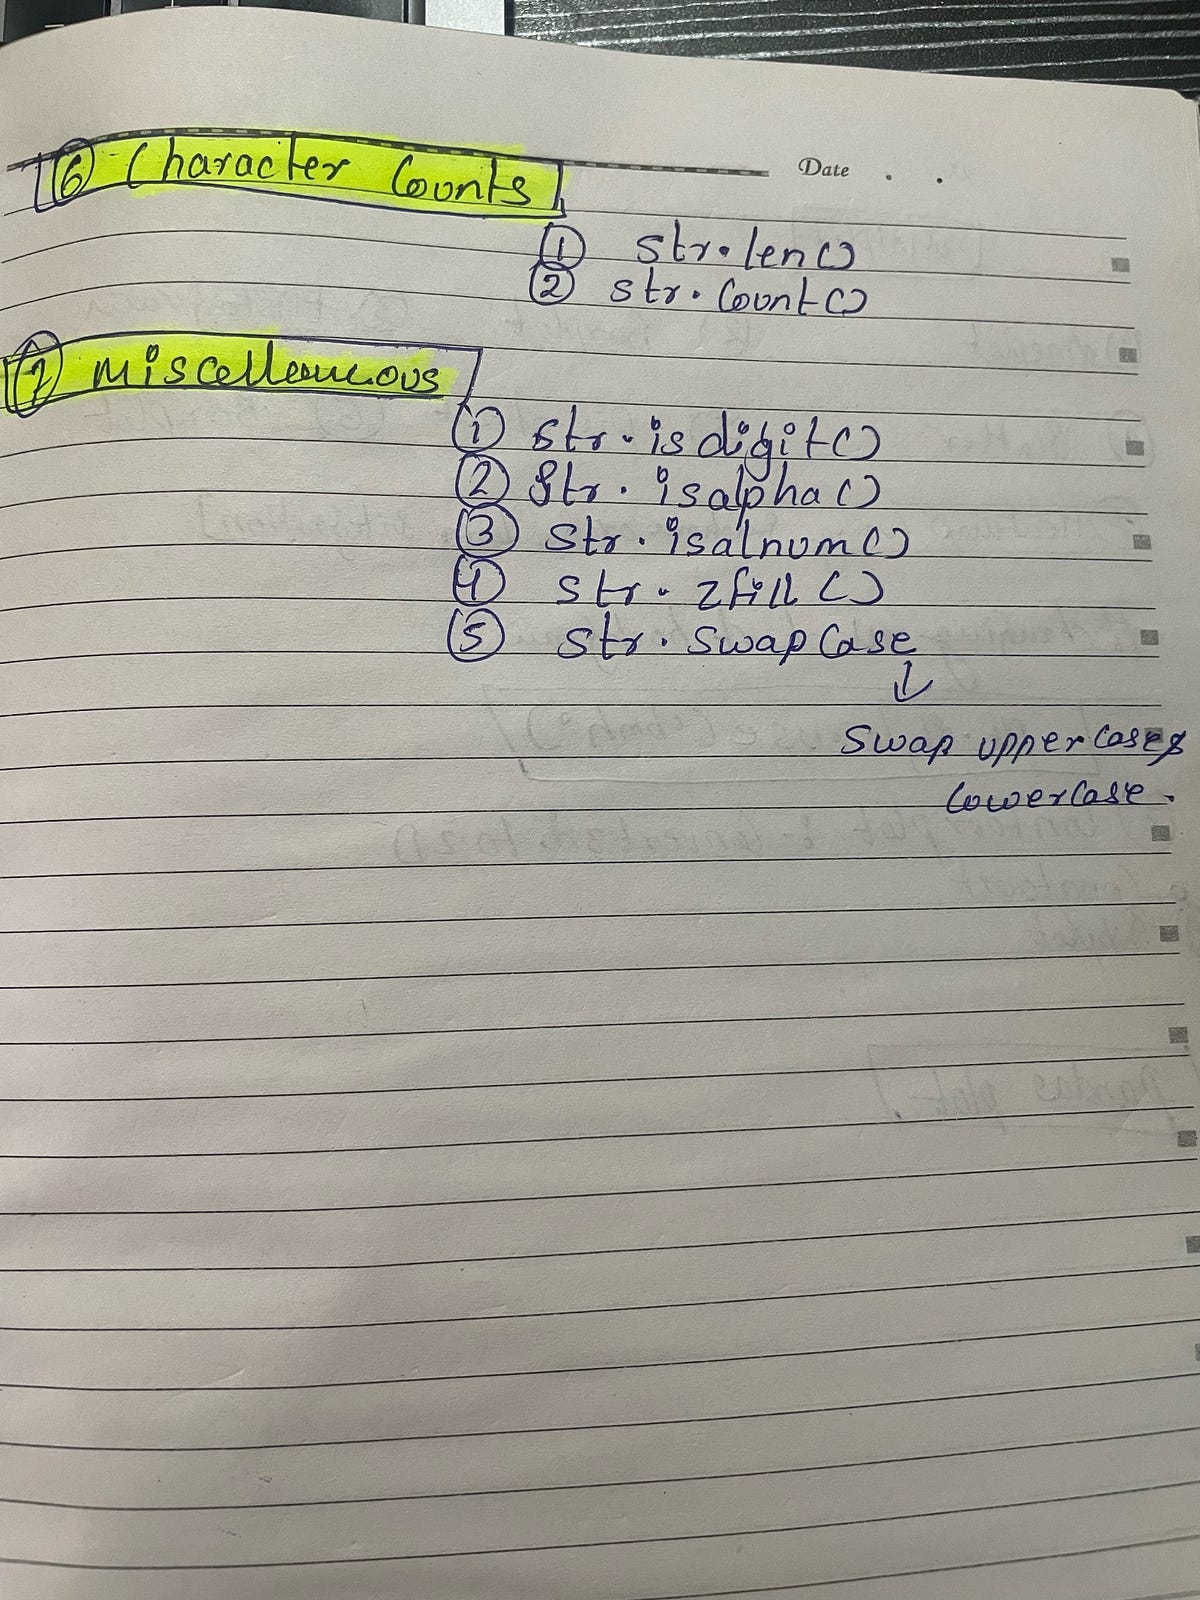 Date . .
⑥ Character Counts
① str.len()
② str.Count()
⑦ Miscelleneous
① str.isdigit()
② str.isalpha()
③ str.isalnum()
④ str.zfill()
⑤ str.swapCase
↓
Swap upperCase &
lowerCase.